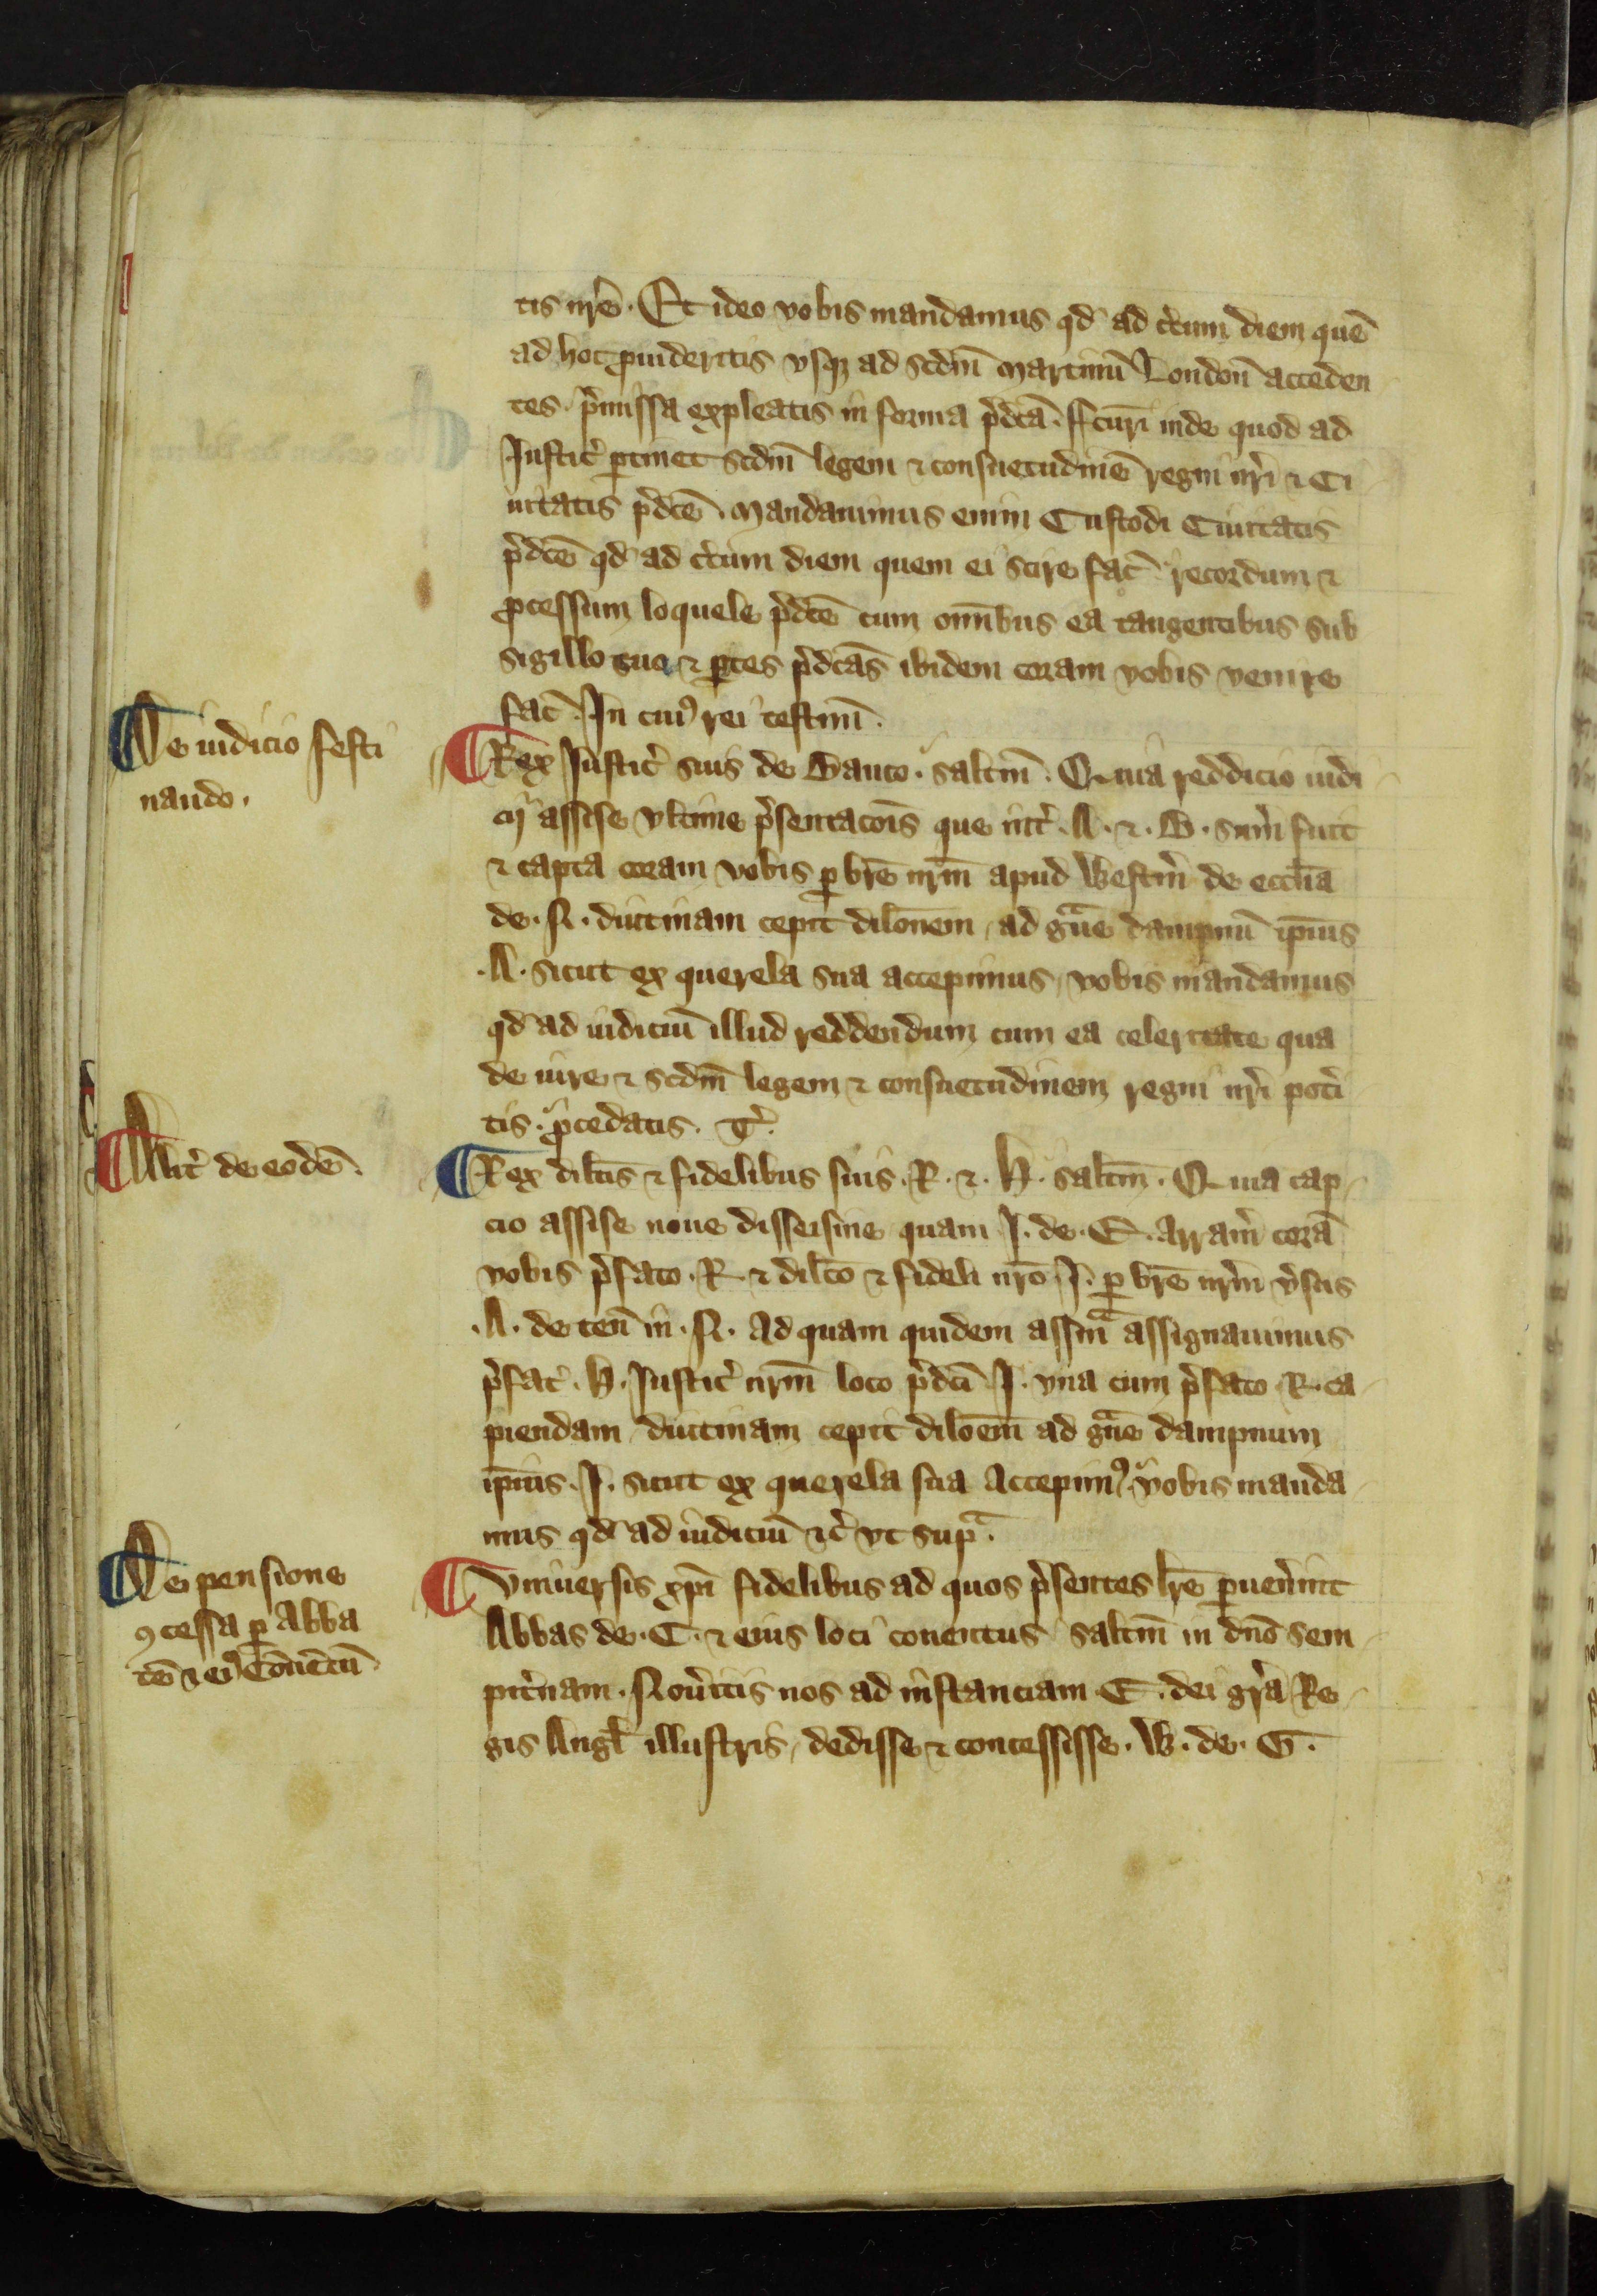 tis nr̄e. Et ideo vobis mandamus qd̄ ad c̉tum diem quē
ad hoc ꝓuideritis vsqꝫ ad sc̄dm̄ Martinū London̄ acceden
tes p̉missa expleatis in forma p̉dc̄a. ffcur̄i inde quod ad
Justic̉ ꝑtinet scd̄m legem ⁊ consuetudinē regni nr̄i ⁊ Ci
uitatis p̉dc̄e. Mandauimus enim Custodi Ciuitatis
p̉dc̄e qd̄ ad c̉tum diem quem ei scire fac̄ recordum ⁊
ꝓcessum loquele p̉dc̄e cum om̄ibus ea tangentibus sub
sigillo suo ⁊ ꝑtes p̉dc̄as ibidem coram vobis venire
fac̄. In cuiꝰ rei testim̄.
De iudicio festi
nando.
Rex Justic̉ suis de Banco. salt̄m. Quia reddicio iudi
cij assise vltime p̉sentac̄ois que int̉ .A. ⁊ .B. sum̉ fuit
⁊ capta coram vobis ꝑ br̄e nr̄m apud Westm̉ de eccl̄ia
de .N. diutinam cepit dil̄onem ad gͣue dampnū ip̄ius
.A. sicut ex querela sua accepimus, vobis mandamus
qd̄ ad iudiciū illud reddendum cum ea celeritate qua
de iure ⁊ scd̄m legem ⁊ consuetudinem regni nr̄i pot̉i
tis ꝓcedatis. T̉.
Alit̉ de eodē.
Rex dilc̄is ⁊ fidelibus suis .R. ⁊ .H. salt̄m. Quia cap
cio assise noue disseisine quam .J. de .E. arram̉ corā
vobis p̉fato .R. ⁊ dilc̄o ⁊ fideli nr̄o .J. ꝑ br̄e nr̄m v̉sus
.A. de ten̄ in .N. Ad quam quidem assīam assignauimus
p̉fat̉ .H. Justic̉ nr̄m loco p̉dc̄i .J. vna cum p̉fato .R. ca
piendam diutinam cepit dil̄oem ad gͣue dampnum
ip̄ius .J. sicut ex querela sua accepimꝰ. vobis manda
mus qd̄ ad iudiciū ⁊c̉ vt supͣ.
De pensione
ꝯcessa ꝑ Abba
tē ⁊ eiꝰ Cōuētū.
Vniuersis xp̄i fidelibus ad quos p̉sentes lr̄e ꝑuen̉int
Abbas de .C. ⁊ eius loci conuentus salt̄m in dn̄o sem
pit̉nam. Noủitis nos ad instanciam .E. dei gr̄a Re
gis Angl̄ illustris, dedisse ⁊ concessisse .W. de .G.